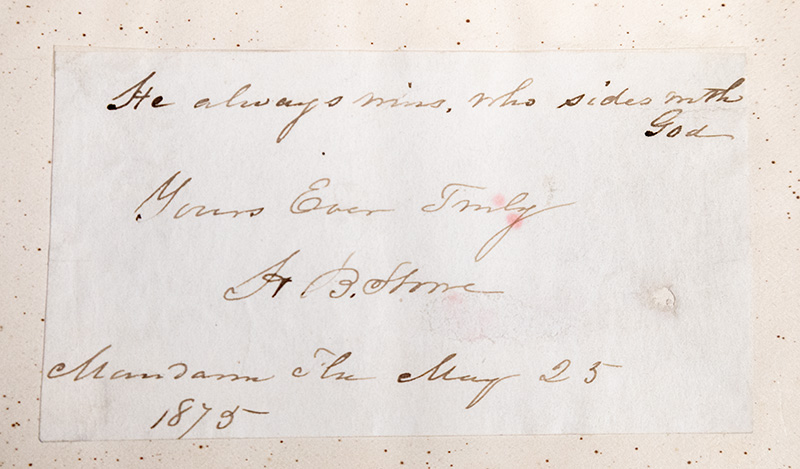 He always wins, who sides with
God
Yours Ever Truly
H B. Stowe
Mandarin Fla May 25
1875